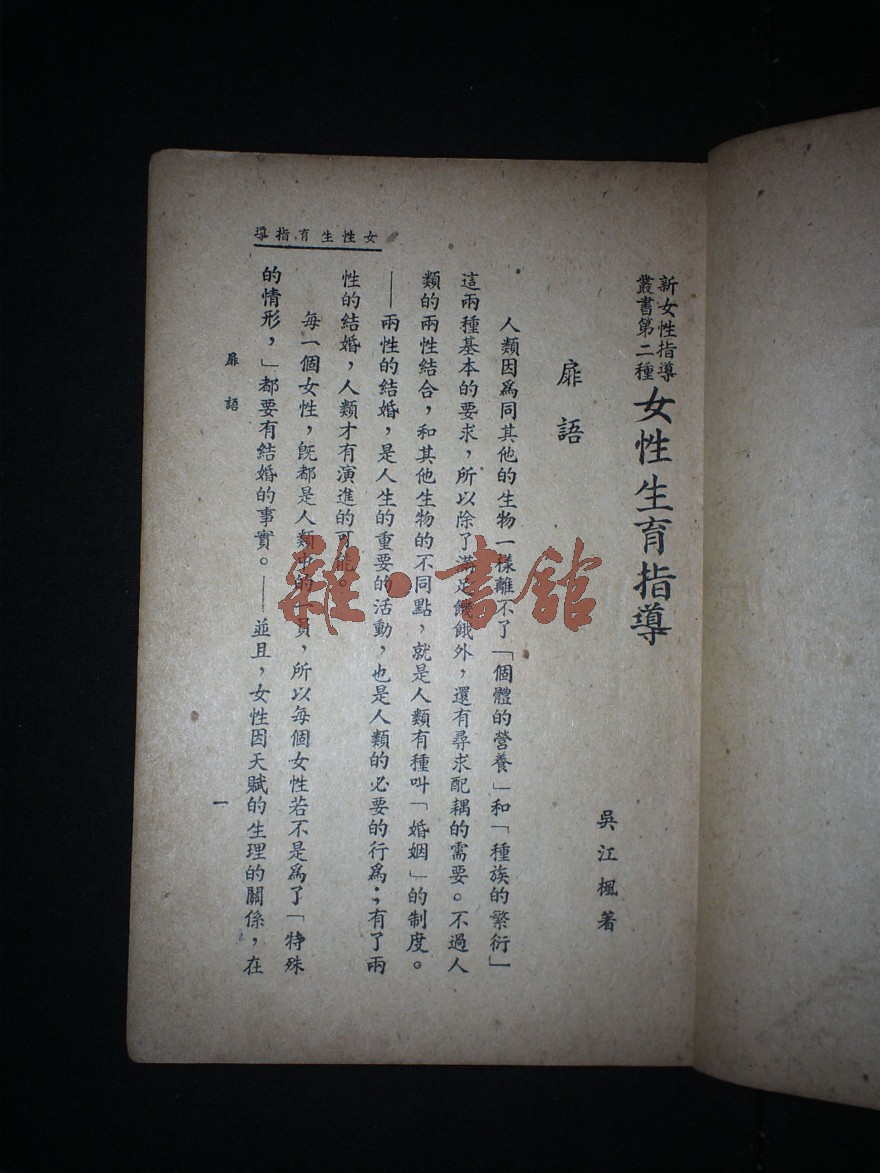 新女性指導
叢書第二種
女性生育指導
吳江楓著
扉語
人類因爲同其他的生物一樣離不了「個體的營養」和「種族的繁衍」
這兩種基本的要求，所以除了滿足饑餓外，還有尋求配耦的需要。不過人
類的兩性結合，和其他生物的不同點，就是人類有種叫「婚姻」的制度。
——兩性的結婚，是人生的重要的活動，也是人類的必要的行爲；有了兩
性的結婚，人類才有演進的可能。
每一個女性，旣都是人類中的一員，所以每個女性若不是爲了「特殊
的情形，」都要有結婚的事實。——並且，女性因天賦的生理的關係，在
女性生育指導
扉語
一
雜·書館